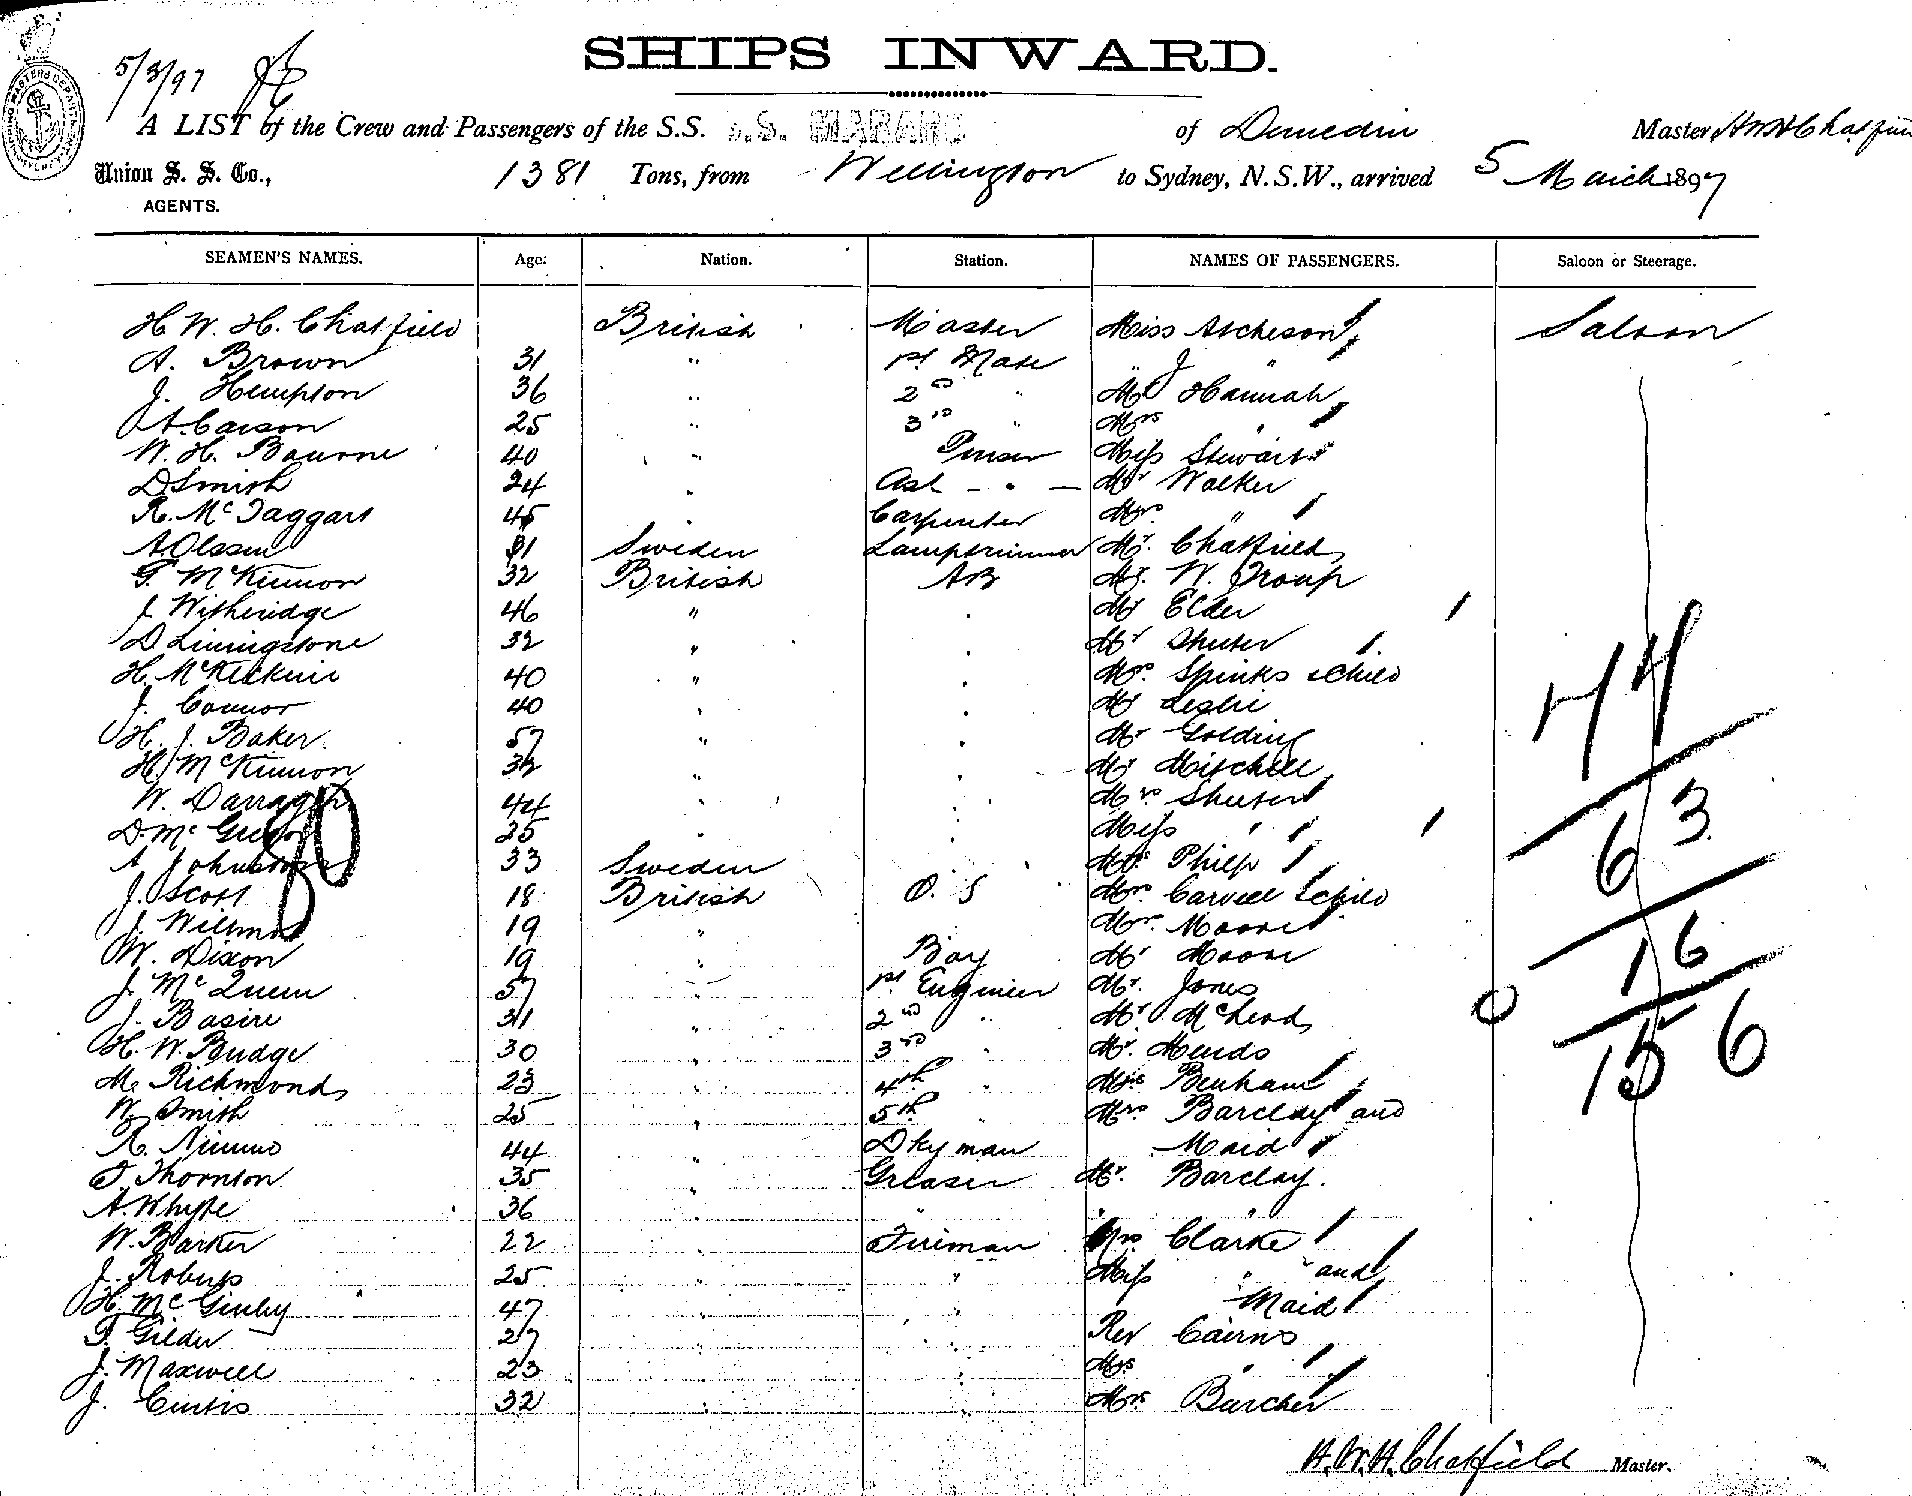 SHIPS INWARD.
5/3/97
A LIST of the Crew and Passengers of the S.S. S.S. MARARO of Dunedin Master H W H Chatfield
Union S. S. Co., 1381 Tons, from Wellington to Sydney, N.S.W., arrived 5 March 1897
AGENTS.
SEAMEN'S NAMES. Age. Nation. Station. NAMES OF PASSENGERS. Saloon or Steerage.
H. W. H. Chatfield British Master Miss Atcheson Saloon
A. Brown 31 " 1st Mate " J "
J. Hempton 36 " 2nd " Mr Hannah
A. Carson 25 " 3rd " Mrs "
W. H. Bourne 40 " Purser Miss Stewart
D Smith 24 " Ast - " - Mr Walker
R. McTaggart 45 " Carpenter Mrs "
A Olssen 31 Sweden Lamptrimmer Mr. Chatfield
McKinnon 32 British AB Mr. W. Troup
J. Witheridge 46 " " Mr Elder
D Livingstone 32 " " Mr Shuter
H. McKechnie 40 " " Mrs. Spinks & Child
J. Connor 40 " " Mr Leslie
H. J. Baker. 57 " " Mr Golding
H. McKinnon 32 " " Mr Mitchell
W. Darragh 44 " " Mrs Shuter
D. McGregor 25 " " Miss "
A Johnston 33 Sweden " Philp
J. Scott 18 British O. S Mrs Carvell & Child
J. 19 " Mrs. Moore
W. Dixon 19 " Boy Mr Moore
J. McQueen 57 " 1st Engineer Mr. Jones
J. Basire 31 " 2nd " Mr McLeod
H. W. Budge 30 " 3rd " Mr.
M. Richmond 23 " 4th " Benham
W. Smith 25 " 5th " Mrs Barclay and
R. Nimmo 44 " Dkyman Maid
T. Thornton 35 " Greaser Mr. Barclay.
A. Whyte 36 " " " "
W. Barker 22 " Fireman Mrs Clarke
J. Roberts 25 " " Miss " and
H. McGinley 47 " " Maid
Gilder 27 " " Rev Cairns
J. Maxwell 23 " " Mrs "
J. Curtis 32 " " Barcher
80
44
63
16
0
156
H.W.H. Chatfield Master.